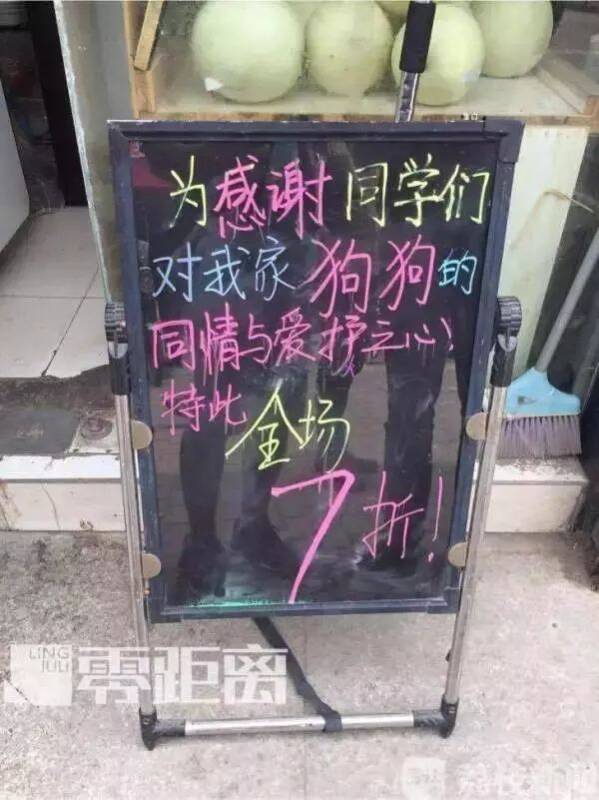 为感谢同学们
对我家狗狗的
同情与爱护之心!
特此
全场
7折!
LING
JULI
零距离
荔枝新闻